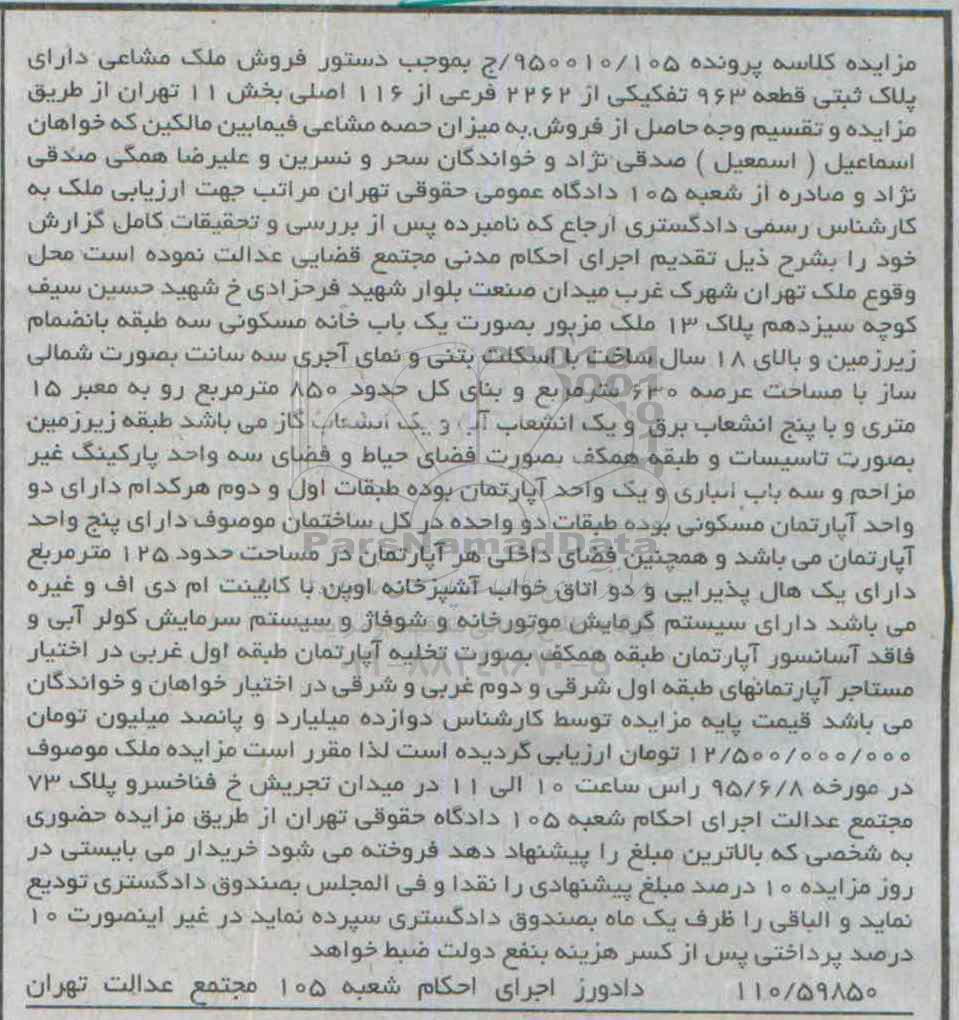 مزایده کلاسه پرونده ۹۵۰۰۱۰/۱۰۵/ج بموجب دستور فروش ملک مشاعی دارای
پلاک ثبتی قطعه ۹۶۳ تفکیکی از ۲۲۶۲ فرعی از ۱۱۶ اصلی بخش ۱۱ تهران از طریق
مزایده و تقسیم وجه حاصل از فروش به میزان حصه مشاعی فیمابین مالکین که خواهان
اسماعیل ( اسمعیل ) صدقی نژاد و خواندگان سحر و نسرین و علیرضا همگی صدقی
نژاد و صادره از شعبه ۱۰۵ دادگاه عمومی حقوقی تهران مراتب جهت ارزیابی ملک به
کارشناس رسمی دادگستری ارجاع که نامبرده پس از بررسی و تحقیقات کامل گزارش
خود را بشرح ذیل تقدیم اجرای احکام مدنی مجتمع قضایی عدالت نموده است محل
وقوع ملک تهران شهرک غرب میدان صنعت بلوار شهید فرحزادی خ شهید حسین سیف
کوچه سیزدهم پلاک ۱۳ ملک مزبور بصورت یک باب خانه مسکونی سه طبقه بانضمام
زیرزمین و بالای ۱۸ سال ساخت با اسکلت بتنی و نمای آجری سه سانت بصورت شمالی
ساز با مساحت عرصه ۶۳۰ مترمربع و بنای کل حدود ۸۵۰ مترمربع رو به معبر ۱۵
متری و با پنج انشعاب برق و یک انشعاب آب و یک انشعاب گاز می باشد طبقه زیرزمین
بصورت تاسیسات و طبقه همکف بصورت فضای حیاط و فضای سه واحد پارکینگ غیر
مزاحم و سه باب انباری و یک واحد آپارتمان بوده طبقات اول و دوم هرکدام دارای دو
واحد آپارتمان مسکونی بوده طبقات دو واحده در کل ساختمان موصوف دارای پنج واحد
آپارتمان می باشد و همچنین فضای داخلی هر آپارتمان در مساحت حدود ۱۲۵ مترمربع
ParsNamadData
دارای یک هال پذیرایی و دو اتاق خواب آشپزخانه اوپن با کابینت ام دی اف و غیره
می باشد دارای سیستم گرمایش موتورخانه و شوفاژ و سیستم سرمایش کولر آبی و
فاقد آسانسور آپارتمان طبقه همکف بصورت تخلیه آپارتمان طبقه اول غربی در اختیار
مستاجر آپارتمانهای طبقه اول شرقی و دوم غربی و شرقی در اختیار خواهان و خواندگان
می باشد قیمت پایه مزایده توسط کارشناس دوازده میلیارد و پانصد میلیون تومان
۱۲/۵۰۰/۰۰۰/۰۰۰ تومان ارزیابی گردیده است لذا مقرر است مزایده ملک موصوف
در مورخه ۹۵/۶/۸ راس ساعت ۱۰ الی ۱۱ در میدان تجریش خ فناخسرو پلاک ۷۳
مجتمع عدالت اجرای احکام شعبه ۱۰۵ دادگاه حقوقی تهران از طریق مزایده حضوری
به شخصی که بالاترین مبلغ را پیشنهاد دهد فروخته می شود خریدار می بایستی در
روز مزایده ۱۰ درصد مبلغ پیشنهادی را نقدا و فی المجلس بصندوق دادگستری تودیع
نماید و الباقی را ظرف یک ماه بصندوق دادگستری سپرده نماید در غیر اینصورت ۱۰
درصد پرداختی پس از کسر هزینه بنفع دولت ضبط خواهد
۱۱۰/۵۹۸۵۰ دادورز اجرای احکام شعبه ۱۰۵ مجتمع عدالت تهران